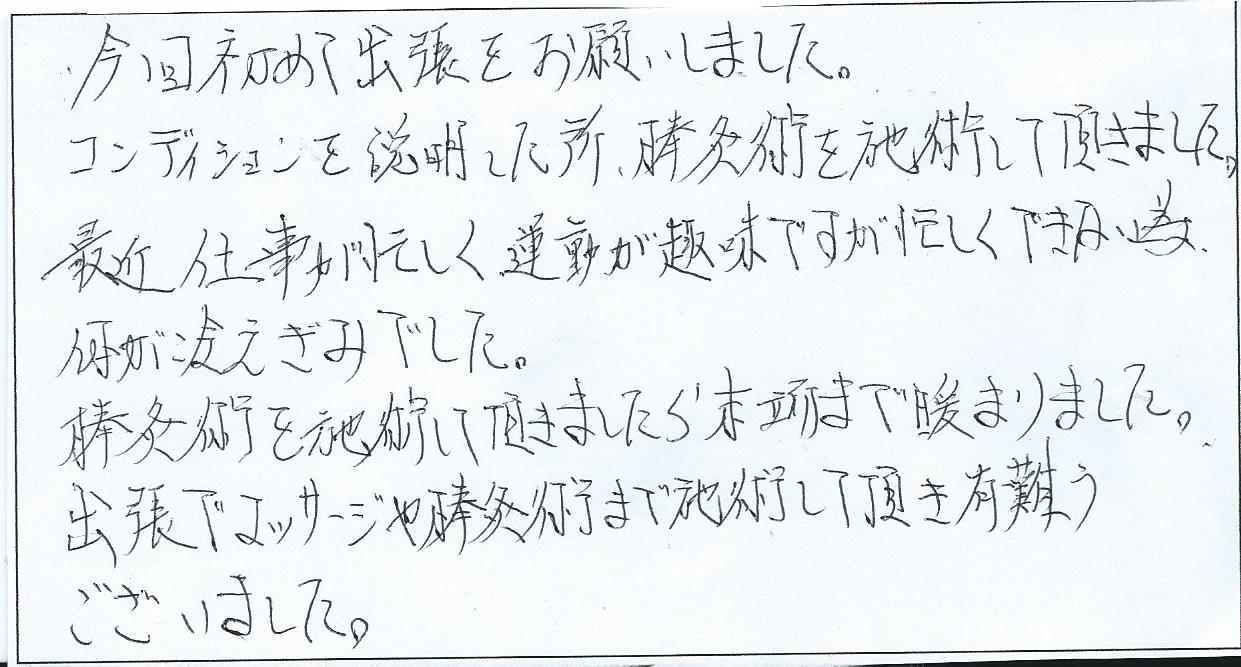 今回初めて出張をお願いしました。
コンディションを説明した所、棒灸術を施術して頂きました。
最近仕事が忙しく運動が趣味ですが忙しくできない為、
何が冷えぎみでした。
棒灸術を施術して頂きましたら末端まで暖まりました。
出張でマッサージや棒灸術まで施術して頂き有難う
ございました。